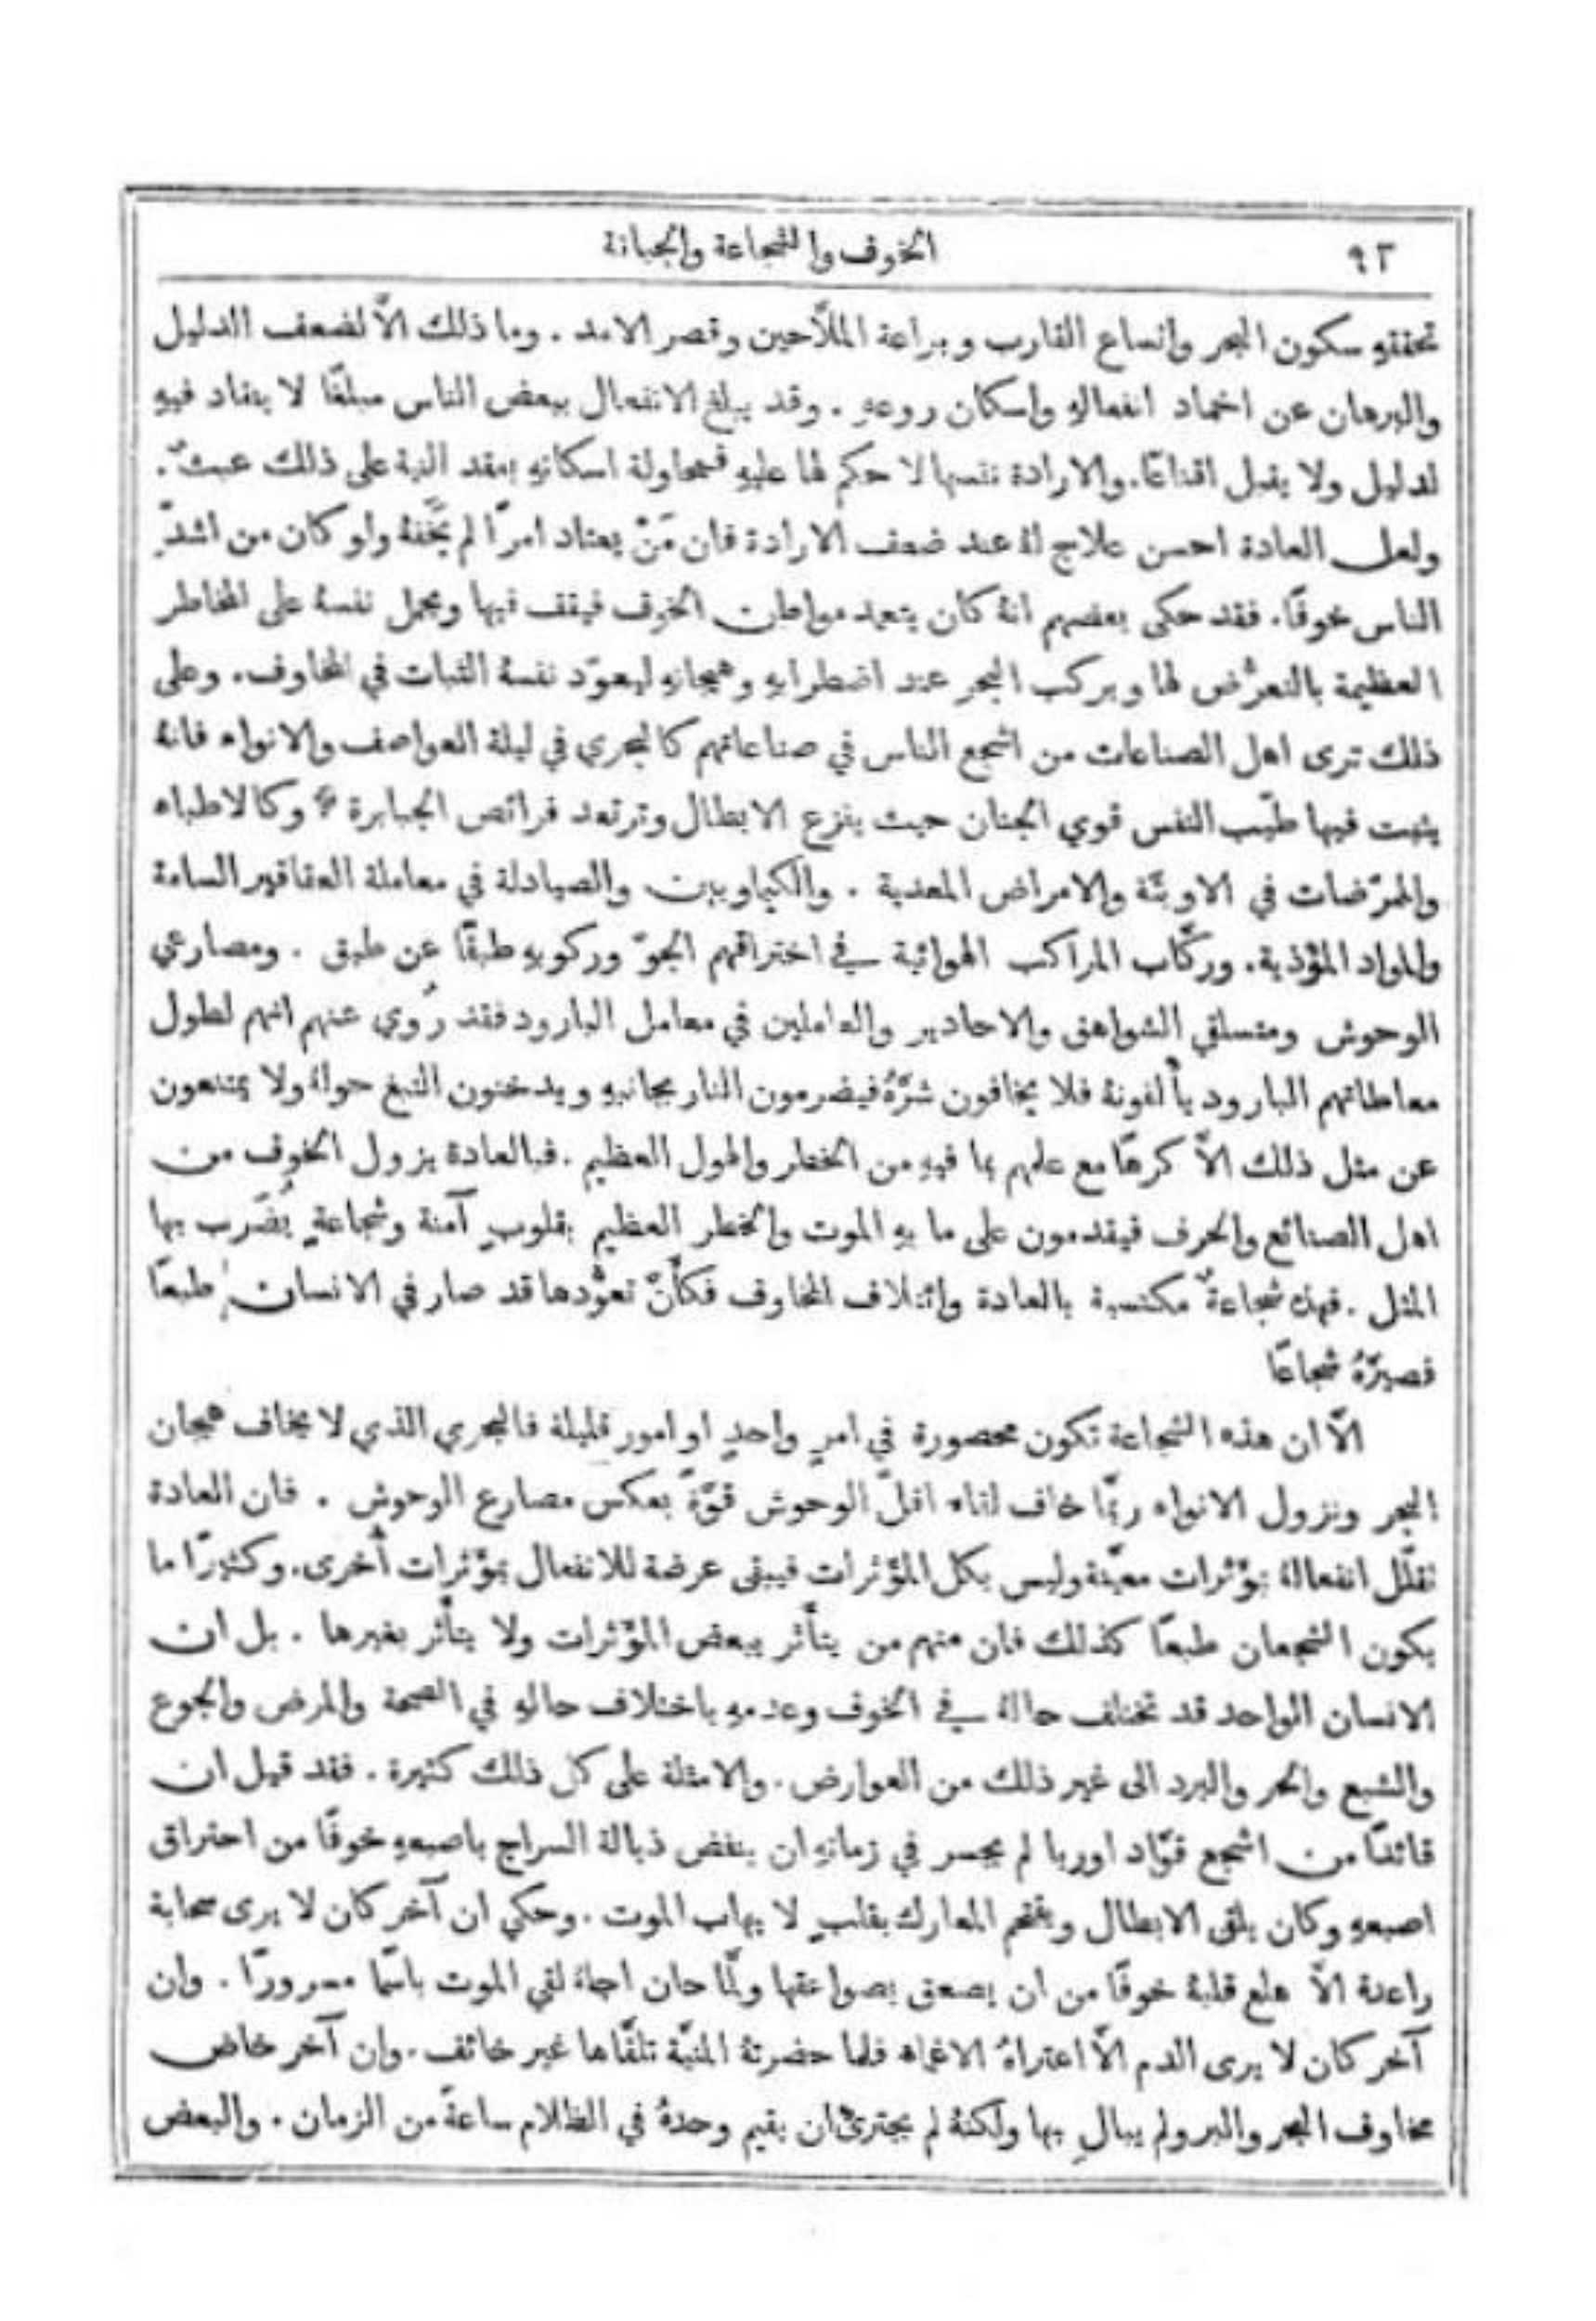 ٩٢
الخوف والشجاعة والجبانة
تحققهِ سكون البحر واتساع القارب وبراعة الملّاحين وقصر الامد . وما ذلك الاّ لضعف الدليل
والبرهان عن اخماد انفعالهِ واسكان روعهِ . وقد يبلغ الانفعال ببعض الناس مبلغًا لا ينقاد فيهِ
لدليل ولا يقبل اقناعًا. والارادة نفسها لا حكم لها عليهِ فمحاولة اسكانهِ بعقد النية على ذلك عبثٌ.
ولعل العادة احسن علاج لهُ عند ضعف الارادة فان مَنْ يعتاد امرًا لم يَخَفهُ ولو كان من اشدّ
الناس خوفًا. فقد حكى بعضهم انهُ كان يتعمد مواطن الخوف فيقف فيها ويحمل نفسهُ على المخاطر
العظيمة بالتعرُّض لها ويركب البحر عند اضطرابهِ وهيجانهِ ليعوّد نفسهُ الثبات في المخاوف. وعلى
ذلك ترى اهل الصناعات من اشجع الناس في صناعاتهم كالبحري في ليلة العواصف والانواء فانهُ
يثبت فيها طيّب النفس قوي الجنان حيث يفزع الابطال وترتعد فرائص الجبابرة * وكالاطباء
والممرّضات في الاوبئة والامراض المعدية . والكيماويين والصيادلة في معاملة العقاقير السامة
والمواد المؤذية. وركّاب المراكب الهوائية في اختراقهم الجوّ وركوبهِ طبقًا عن طبق . ومصارعي
الوحوش ومتسلقي الشواهق والاحادير والعاملين في معامل البارود فقد رُوي عنهم انهم لطول
معاطاتهم البارود يأْلفونهُ فلا يخافون شرَّهُ فيضرمون النار بجانبهِ ويدخنون التبغ حولهُ ولا يمتنعون
عن مثل ذلك الاّ كرهًا مع علمهم بما فيهِ من الخطر والهول العظيم . فبالعادة يزول الخوف من
اهل الصنائع والحرف فيقدمون على ما بهِ الموت والخطر العظيم بقلوبٍ آمنة وشجاعةٍ يُضرَب بها
المثل . فهذه شجاعةٌ مكتسبة بالعادة وائتلاف المخاوف فكأَنّ تعوُّدها قد صار في الانسان طبعًا
فصيَّرهُ شجاعًا
الاّ ان هذه الشجاعة تكون محصورة في امرٍ واحدٍ او امور قليلة فالبحري الذي لا يخاف هيجان
البحر ونزول الانواء ربّما خاف لقاء اقلّ الوحوش قوَّةً بعكس مصارع الوحوش . فان العادة
تقلّل انفعالهُ بمؤثرات معيّنة وليس بكل المؤثرات فيبقى عرضة للانفعال بمؤثرات أُخرى. وكثيرًا ما
يكون الشجعان طبعًا كذلك فان منهم من يتأثر ببعض المؤثرات ولا يتأثر بغيرها . بل ان
الانسان الواحد قد تختلف حالهُ في الخوف وعدمهِ باختلاف حالهِ في الصحة والمرض والجوع
والشبع والحر والبرد الى غير ذلك من العوارض. والامثلة على كل ذلك كثيرة . فقد قيل ان
قائدًا من اشجع قوّاد اوربا لم يجسر في زمانهِ ان ينفض ذبالة السراج باصبعهِ خوفًا من احتراق
اصبعهِ وكان يلقى الابطال ويقتحم المعارك بقلبٍ لا يهاب الموت . وحكي ان آخر كان لا يرى سحابة
راعدة الاّ هلع قلبهُ خوفًا من ان يصعق بصواعقها ولمّا حان اجلهُ لقي الموت باسمًا مسرورًا . وان
آخر كان لا يرى الدم الاّ اعتراهُ الاغماء فلما حضرتهُ المنيّة تلقّاها غير خائف . وان آخر خاض
مخاوف البحر والبر ولم يبالِ بها ولكنهُ لم يجترئ ان يقيم وحدهُ في الظلام ساعةً من الزمان . والبعض